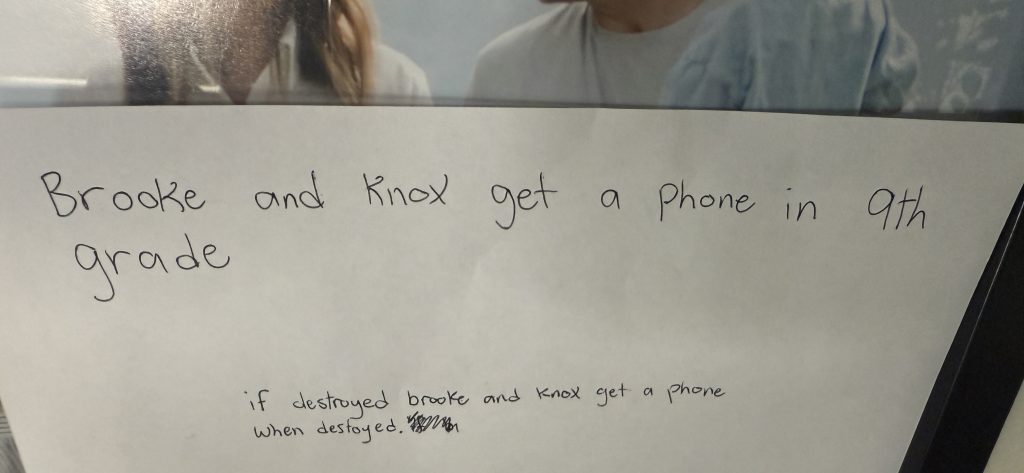 Brooke and Knox get a phone in 9th
grade
if destroyed brooke and Knox get a phone
when destoyed.